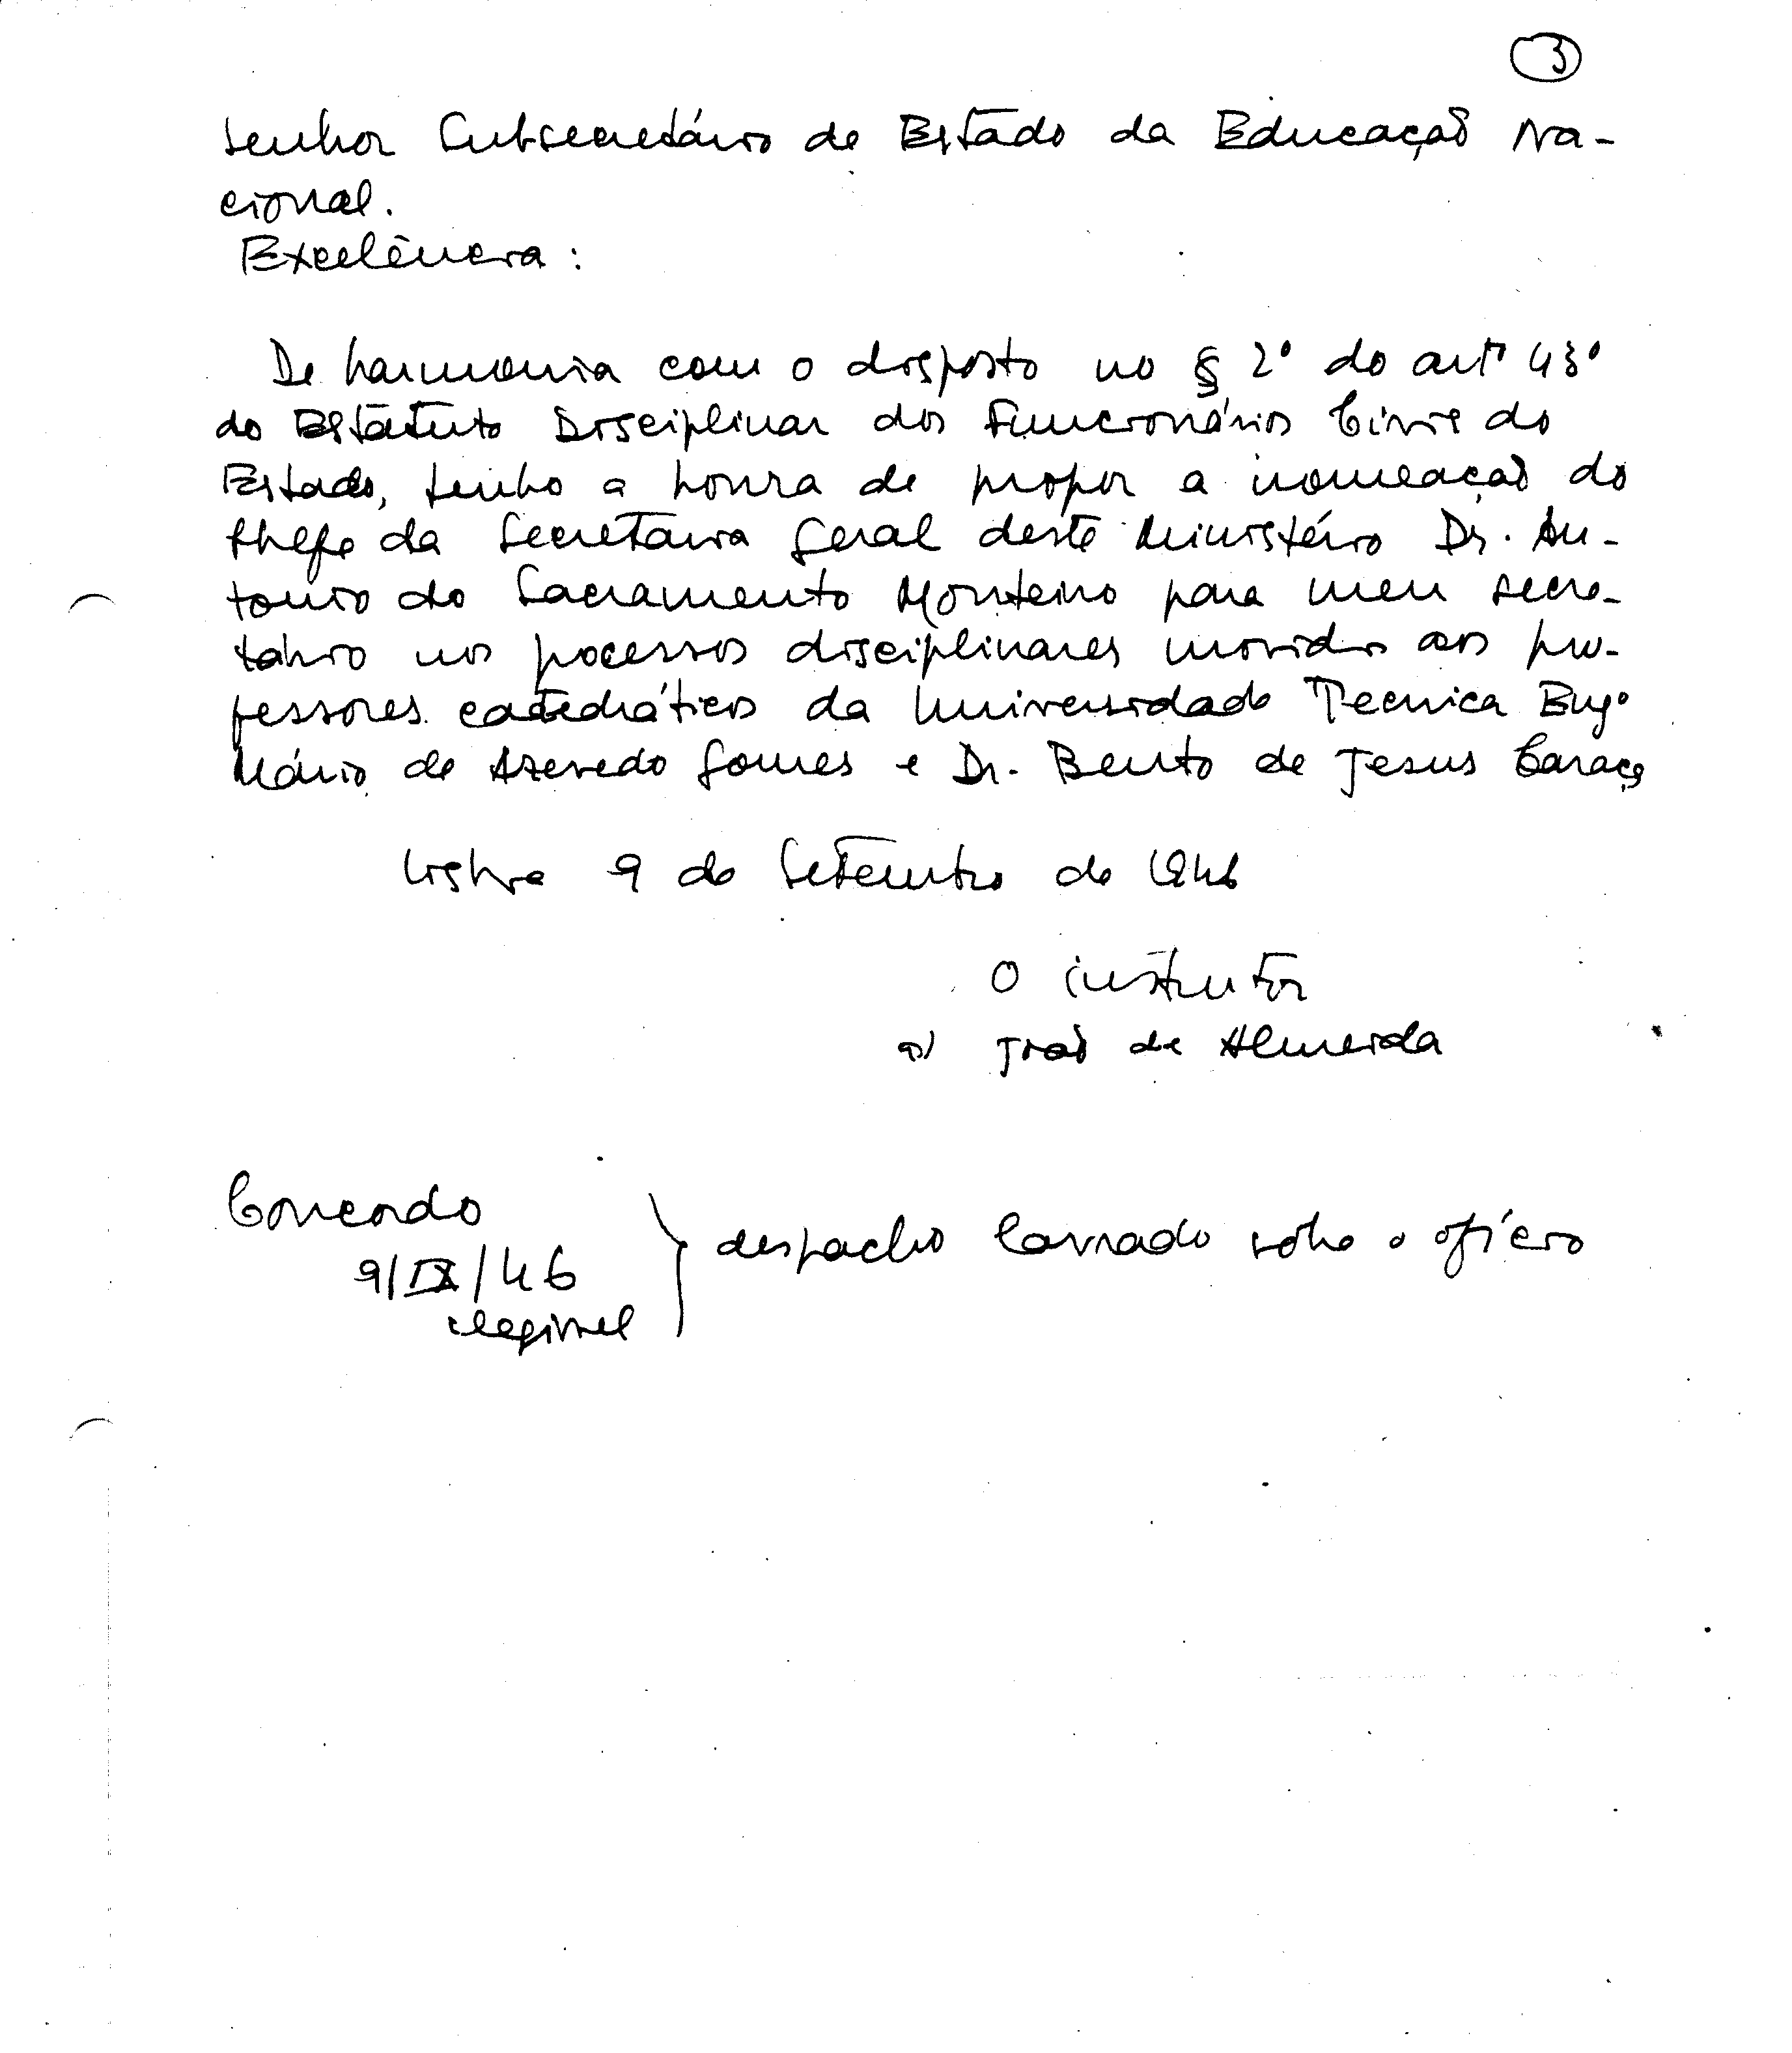 3
Senhor Subsecretário de Estado da Educação Na-
cional.
Excelência :
De harmonia com o disposto no § 2º do artº 43º
do Estatuto Disciplinar dos Funcionários Civis do
Estado, tenho a honra de propor a nomeação do
Chefe da Secretaria Geral deste Ministério Dr. An-
tonio do Sacramento Monteiro para meu secre-
tário nos processos disciplinares movidos aos pro-
fessores catedráticos da Universidade Tecnica Engº
Mário de Azevedo Gomes e Dr. Bento de Jesus Caraça
Lisboa 9 de Setembro de 1946
O instrutor
a) João de Almeida
Concordo
9/IX/46
ilegivel
despacho lavrado sobre o ofício